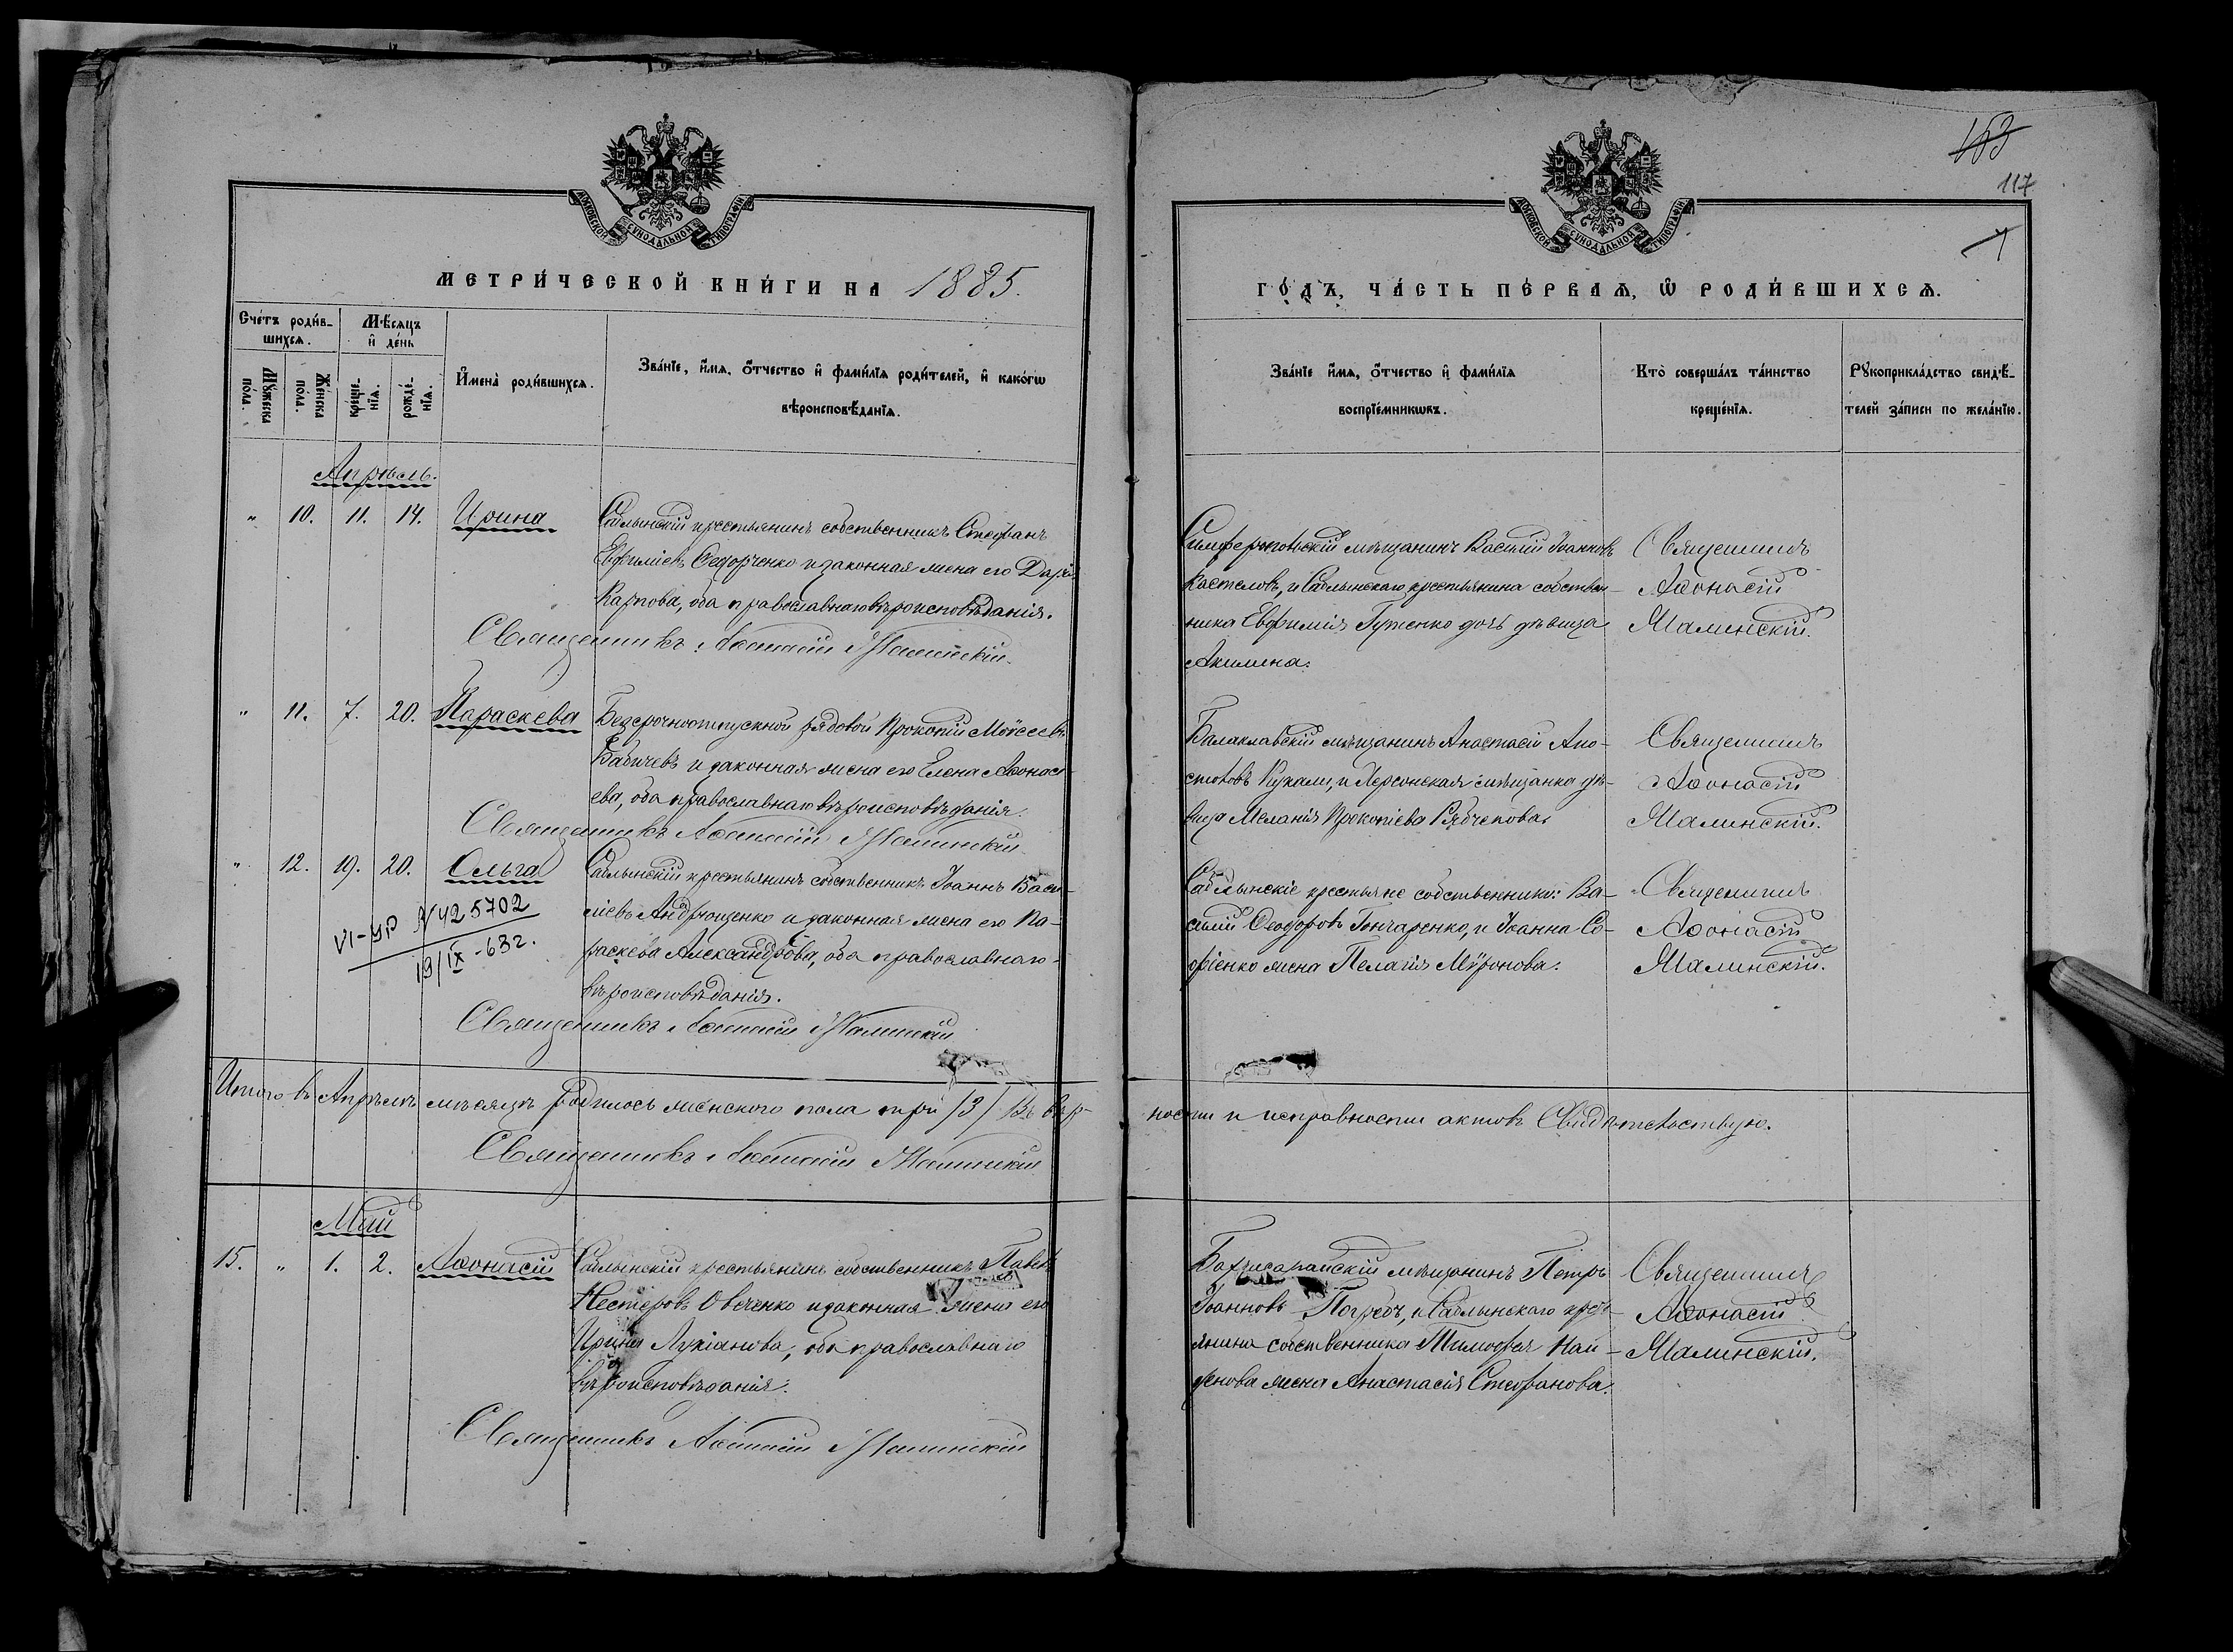 МОСКОВСКОЙ СѴНОДАЛЬНОЙ ТИПОГРАФІИ
МЕТРИ́ЧЕСКОЙ КНИ́ГИ НА 1885.
Сче́тъ роди́в-
шихсѧ.
Мѣ́сѧцъ
и҆ де́нь
Мꙋ́жеска
по́ла.
Же́нска
по́ла.
креще́-
нїѧ.
рожде́-
нїѧ.
И҆мена̀ роди́вшихсѧ.
Зва́нїе, и҆́мѧ, ѻ҆́тчество и҆ фами́лїѧ роди́телей, и҆ како́гѡ
вѣроисповѣ́данїѧ.
Апрѣль.
" 10. 11. 14. Ирина
Саблынскій крестьянинъ собственникъ Стефанъ
Евфиміевъ Федорченко и законная жена его Дарія
Карпова, оба православнаго вѣроисповѣданія.
Священникъ Аѳонасій Малинскій.
" 11. 7. 20. Параскева
Безсрочноотпускной рядовой Прокопій Моѵсеевъ
Бабичевъ и законная жена его Елена Аѳонась-
ева, оба православнаго вѣроисповѣданія.
Священникъ Аѳонасій Малинскій
" 12. 19. 20. Ольга
Саблынскій крестьянинъ собственникъ Іоаннъ Васи-
ліевъ Андрющенко и законная жена его Па-
раскева Александрова, оба православнаго
вѣроисповѣданія.
VI-УР N425702
19/IX-63г.
Священникъ Аѳонасій Малинскій
Итого въ Апрѣлѣ мѣсяцѣ родилось женского пола три /3/ Въ вѣр-
Священникъ Аѳонасій Малинскій
Май
15. " 1. 2. Аѳонасій
Саблынскій крестьянинъ собственникъ Павелъ
Нестеровъ Овеченко и законная жена его
Ирина Лукіанова, оба православнаго
вѣроисповѣданія.
Священникъ Аѳонасій Малинскій
153
117
МОСКОВСКОЙ СѴНОДАЛЬНОЙ ТИПОГРАФІИ
ГО́ДЪ, ЧА́СТЬ ПЕ́РВАѦ, Ѡ҆ РОДИ́ВШИХСѦ.
Зва́нїе и҆́мѧ, ѻ҆́тчество и҆ фами́лїѧ
воспрїе́мникѡвъ.
Кто̀ соверша́лъ та́инство
креще́нїѧ.
Рꙋкоприкла́дство свидѣ́-
телей за́писи по жела́нїю.
Симферопольскій мѣщанинъ Василій Іоанновъ
Кастеловъ, и Саблынскаго крестьянина собствен-
ника Евфимія Гутенко дочь дѣвица
Акилина.
Священникъ
Аѳонасій
Малинскій.
Балаклавскій мѣщанинъ Анастасій Апо-
столовъ Кукали, и Херсонская мѣщанка дѣ-
вица Меланія Прокопіева Рябченкова.
Священникъ
Аѳонасій
Малинскій.
Саблынскіе крестьяне собственники: Ва-
силій Ѳеодоровъ Гончаренко, и Іоанна Со-
фіенко жена Пелагія Мѵронова.
Священникъ
Аѳонасій
Малинскій.
ности и исправности актовъ Свидѣтельствую.
Бахчисарайскій мѣщанинъ Петръ
Іоанновъ Погребъ, и Саблынскаго кресть-
янина собственника Тимофея Най-
денова жена Анастасія Стефанова.
Священникъ
Аѳонасій
Малинскій.